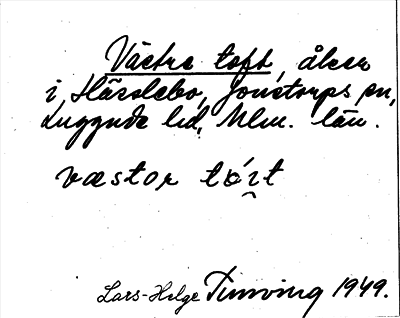 Västra toft, åker
i Hässlebo, Jonstorps sn,
Luggude hd, Mlm. län.
væstor
Lars-Helge Tunving 1949.